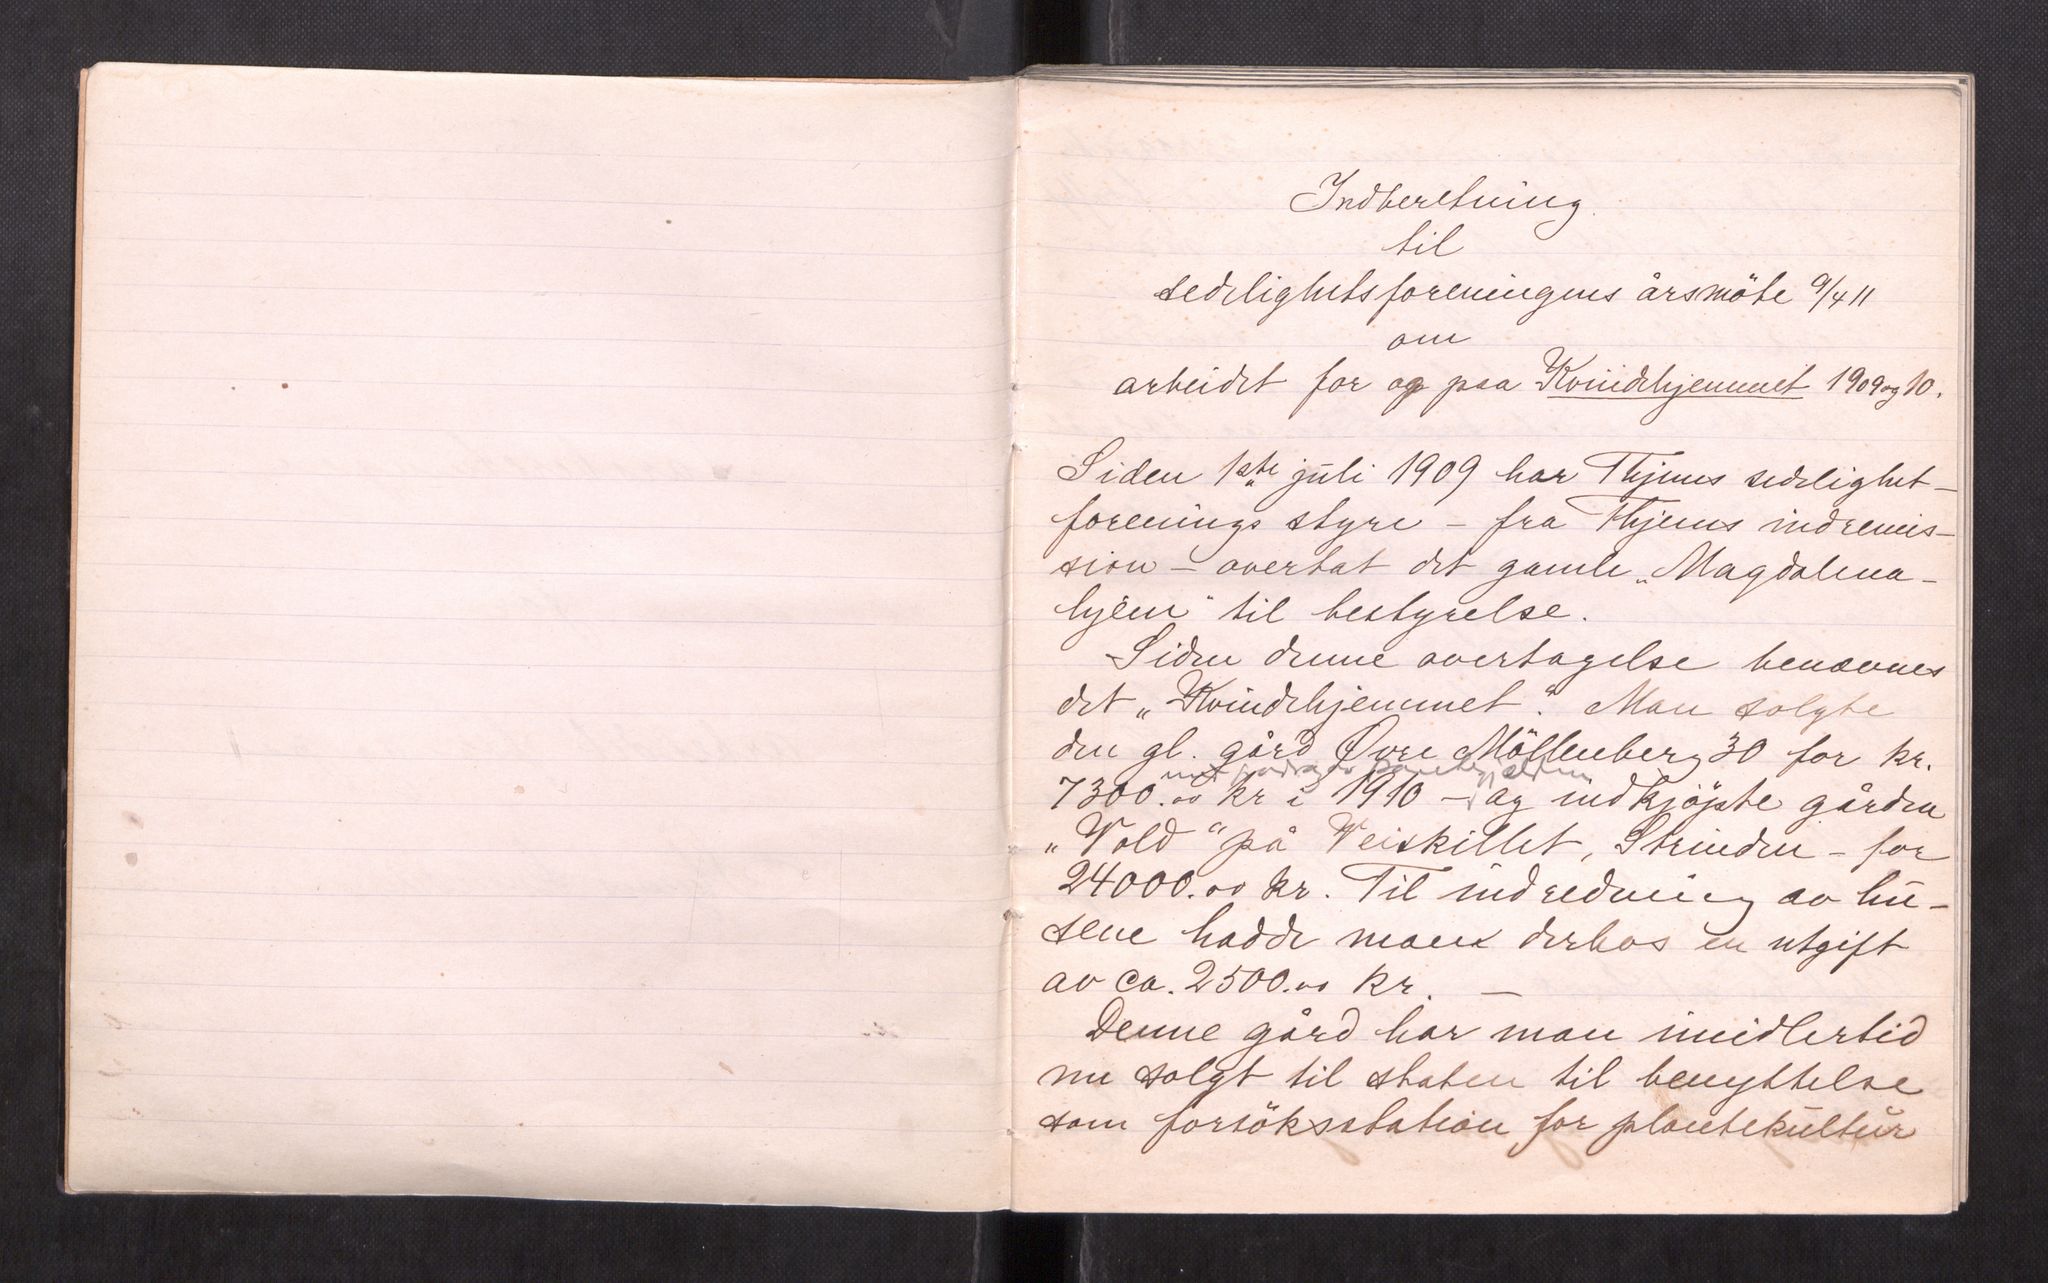 Indberetning
til
sedelighetsforeningens årsmöte 9/4 11
om
arbeidet for og paa Kvindehjemmet 1909 og 10.
Siden 1ste juli 1909 har Thjems sedelighet-
forenings styre - fra Thjems indremis-
sion - overtat det gamle „Magdalena-
hjem“ til bestyrelse.
Siden denne overtagelse benævnes
det „Kvindehjemmet“. Man solgte
den gl. gård Øvre Möllenberg 30 for kr.
med fradrag av pantegjælden
7300.00 kr i 1910 - og indkjöpte gården
„Vold“ på Veiskillet, Strinden - for
24000.00 kr. Til indredning av hu-
sene hadde man derhos en utgift
av ca. 2500.00 kr. —
Denne gård har man imidlertid
nu solgt til staten til benyttelse
som forsöksstation for plantekultur